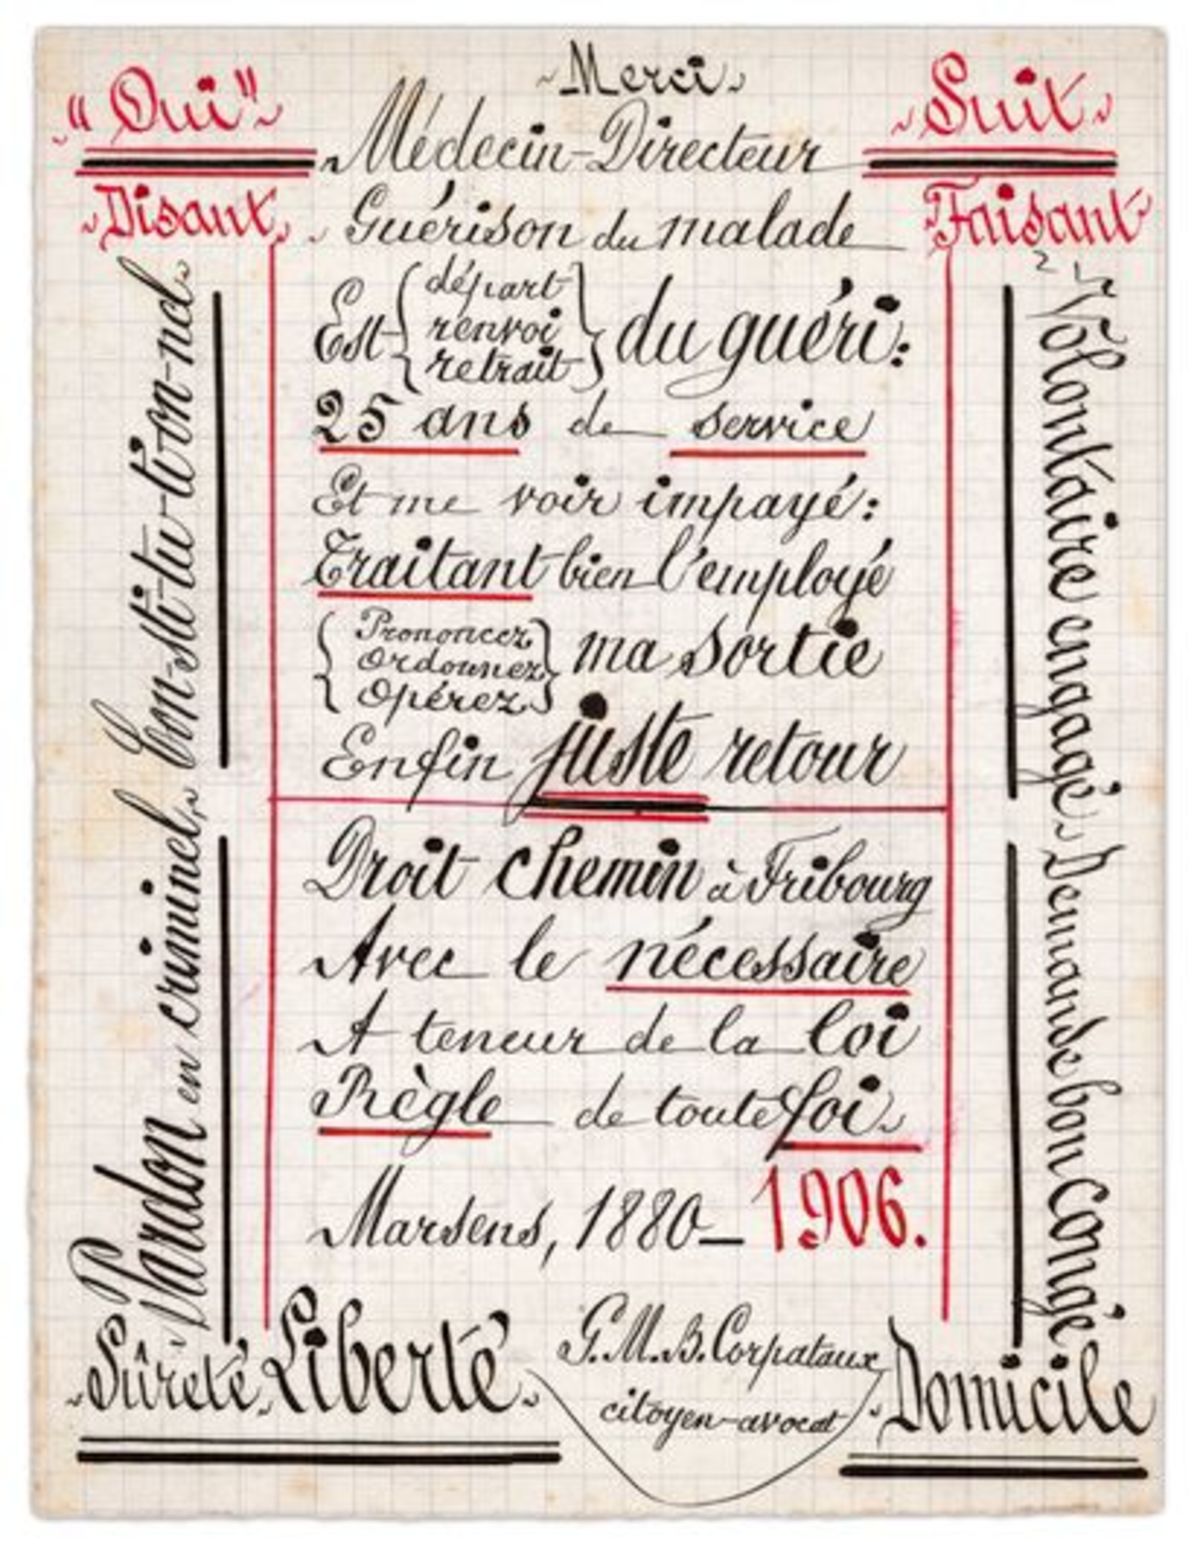 ~Merci~
"Oui"~
~Suit~
Médecin-Directeur
~Disant~
~Faisant~
Guérison du malade
Est { départ renvoi retrait } du guéri:
25 ans de service
Et me voir impayé:
Traitant bien l'employé
{ Prononcez Ordonnez Opérez } ma sortie
Enfin juste retour
Droit chemin à Fribourg
Avec le nécessaire
A teneur de la loi
Règle de toute foi~
Marsens, 1880_1906.
Pardon en criminel~ Con-sti-tu-tion-nel~
Volontaire engagé~ Demande bon Congé
~Sûreté~ Liberté~
G.M.B. Corpataux
citoyen-avocat
~Domicile